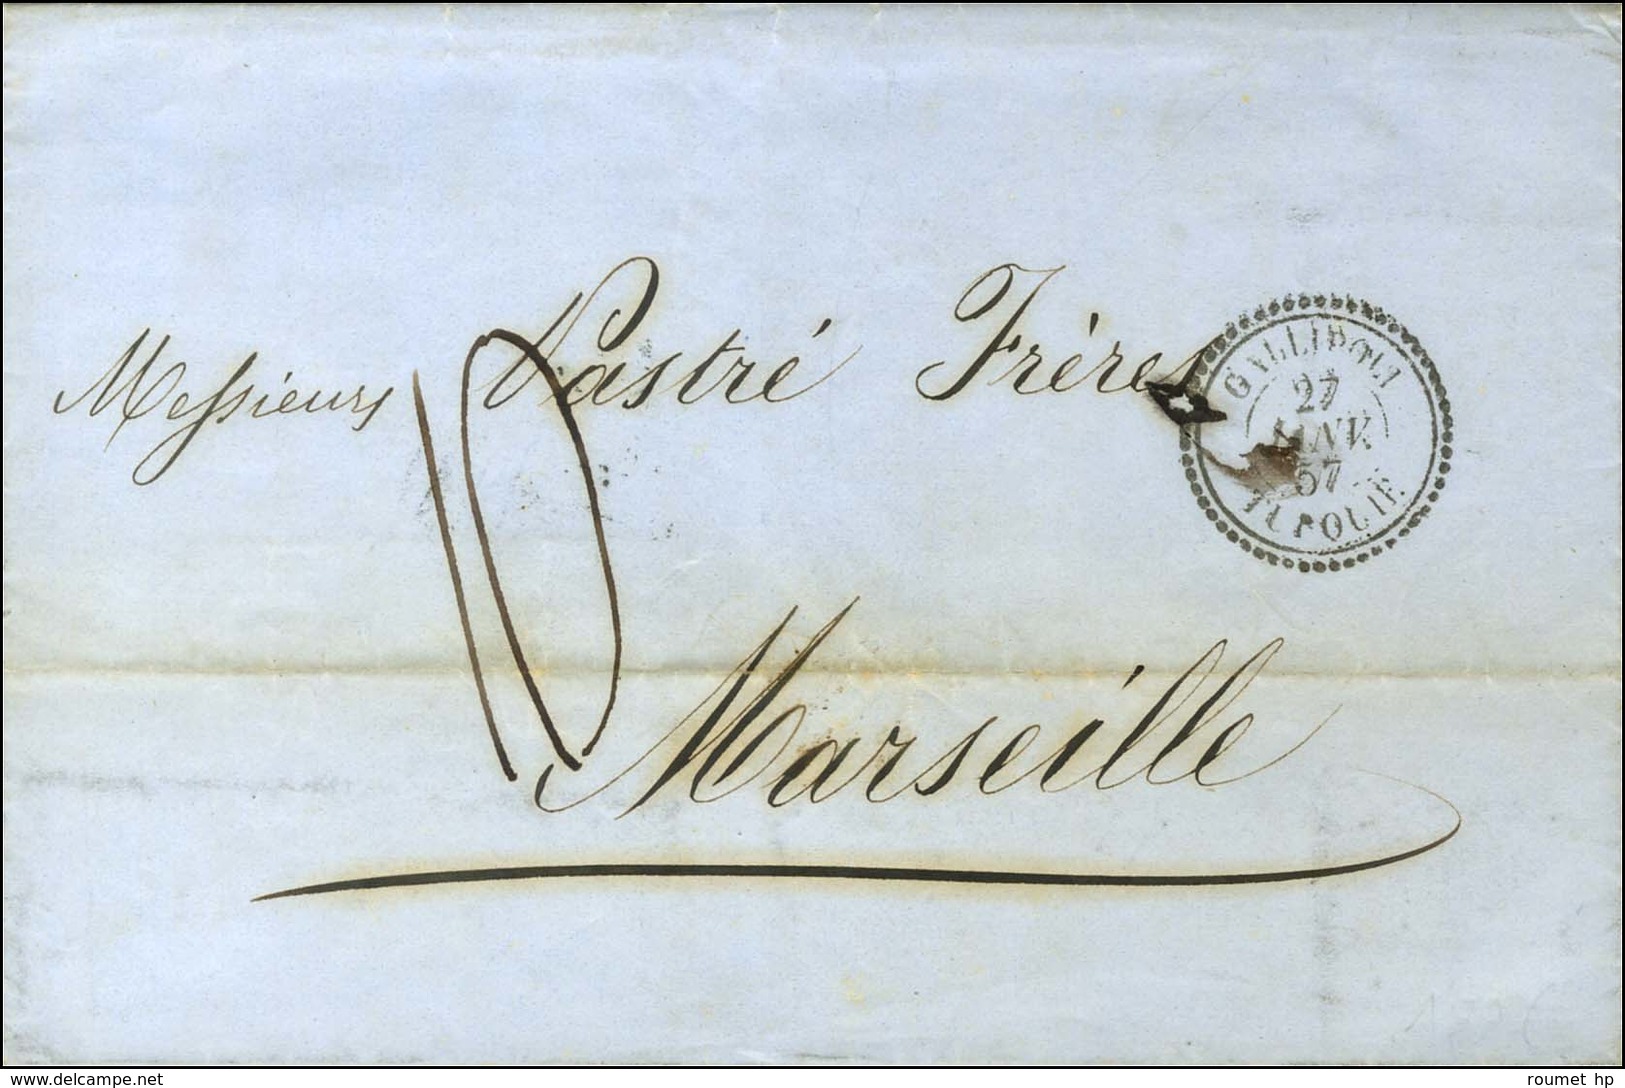 Messieurs Pastré Frères
10
GALLIPOLI
27
JANV.
57
TURQUIE
Marseille
www.delcampe.net
roumet hp